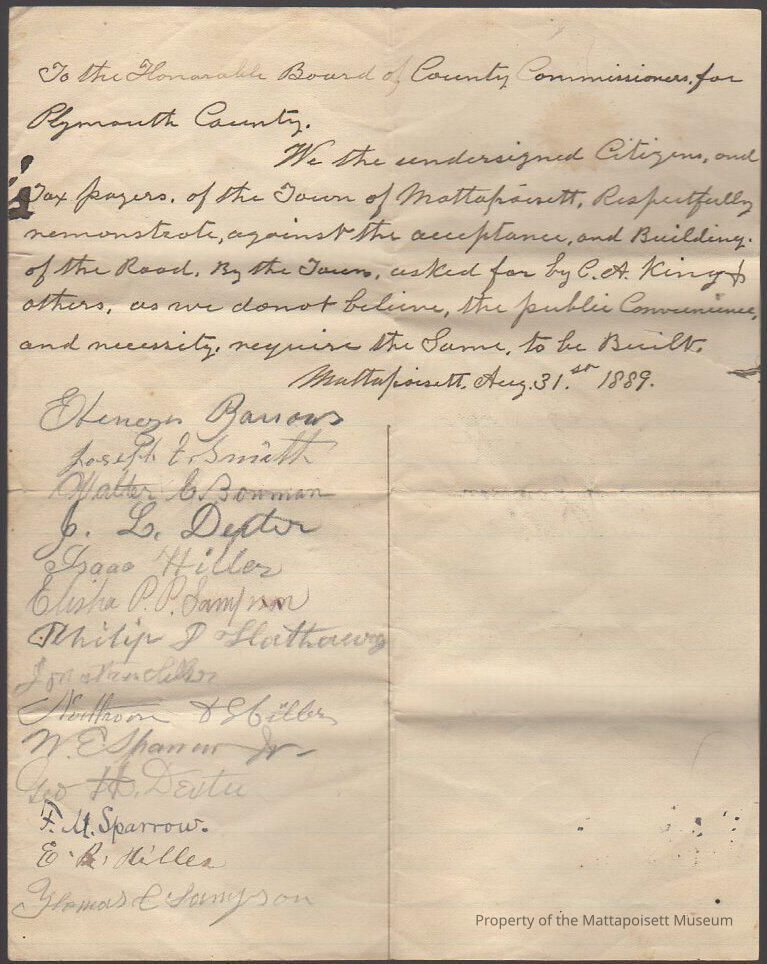 To the Honorable Board of County Commissioners, for
Plymouth County.
We the undersigned Citizens, and
Tax payers, of the Town of Mattapoisett, Respectfully
remonstrate, against the acceptance, and Building.
of the Road. By the Town, asked for by C. A. King &
others, as we do not believe, the public Convenience,
and necessity, require the Same, to be Built.
Mattapoisett. Aug. 31.st 1889.
Ebenezer Barrows
Joseph E. Smith
Walter C Bowman
J. L. Dexter
Isaac Hiller
Elisha P. P. Sampson
Philip D Hathaway
Jonathan Hiller
Hiller
W. E Sparrow Jr
Geo H. Dexter
F. M. Sparrow.
E. R. Hiller
Thomas C Sampson
Property of the Mattapoisett Museum